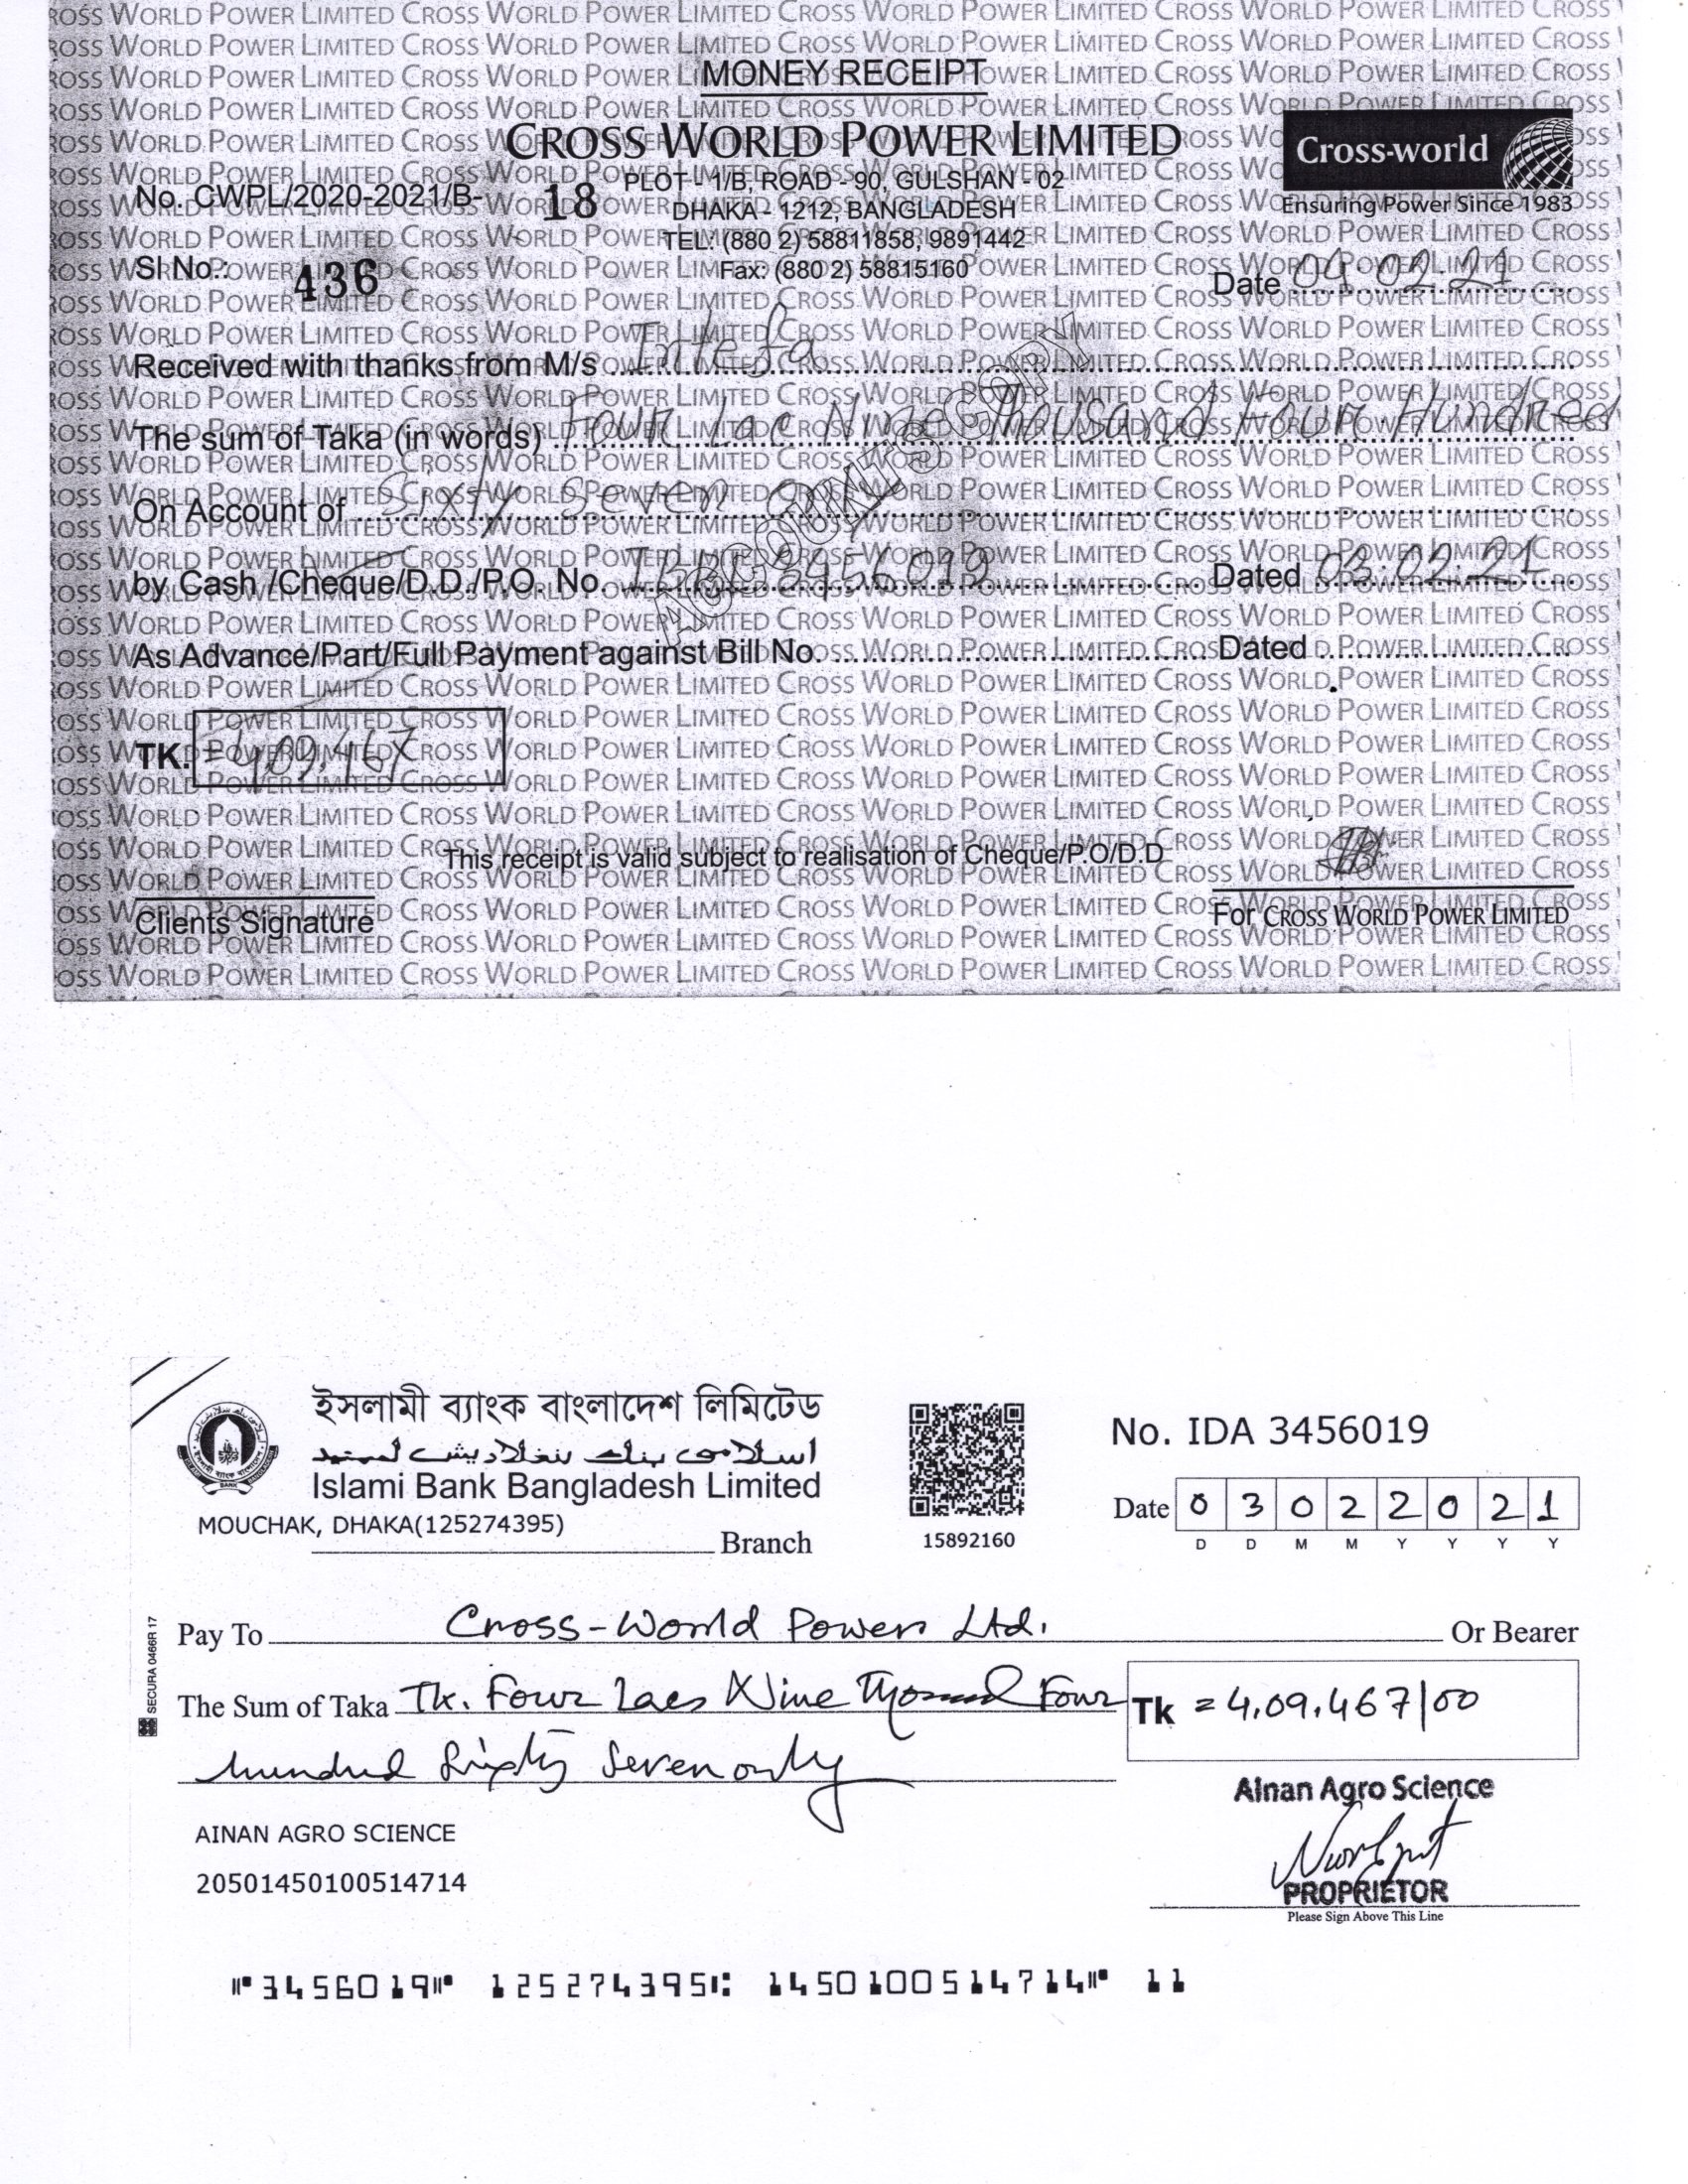 MONEY RECEIPT
CROSS WORLD POWER LIMITED
Cross-world
Ensuring Power Since 1983
No. CWPL/2020-2021/B- 18
PLOT - 1/B, ROAD - 90, GULSHAN - 02
DHAKA - 1212, BANGLADESH
TEL: (880 2) 58811858, 9891442
Fax: (880 2) 58815160
Sl No.: 436
Date 04.02.21
Received with thanks from M/s Intefa
The sum of Taka (in words) Four Lac Nine Thousand Four Hundred
On Account of Sixty Seven only
by Cash /Cheque/D.D./P.O. No. IBBL-3456019 Dated 03.02.21
As Advance/Part/Full Payment against Bill No. Dated
ACCOUNTS COPY
TK. =409,467
This receipt is valid subject to realisation of Cheque/P.O/D.D
Clients Signature
For CROSS WORLD POWER LIMITED
ইসলামী ব্যাংক বাংলাদেশ লিমিটেড
اسلامى بنك بنغلاديش لميتيد
Islami Bank Bangladesh Limited
MOUCHAK, DHAKA(125274395)
Branch
15892160
No. IDA 3456019
Date 0 3 0 2 2 0 2 1
D D M M Y Y Y Y
SECURA 0466R 17
Pay To Cross-World Power Ltd. Or Bearer
The Sum of Taka Tk. Four Lacs Nine Thousand Four
hundred Sixty Seven only
Tk = 4,09,467/00
Ainan Agro Science
PROPRIETOR
Please Sign Above This Line
AINAN AGRO SCIENCE
20501450100514714
⑈3456019⑈ 125274395⑆ 1450100514714⑈ 11